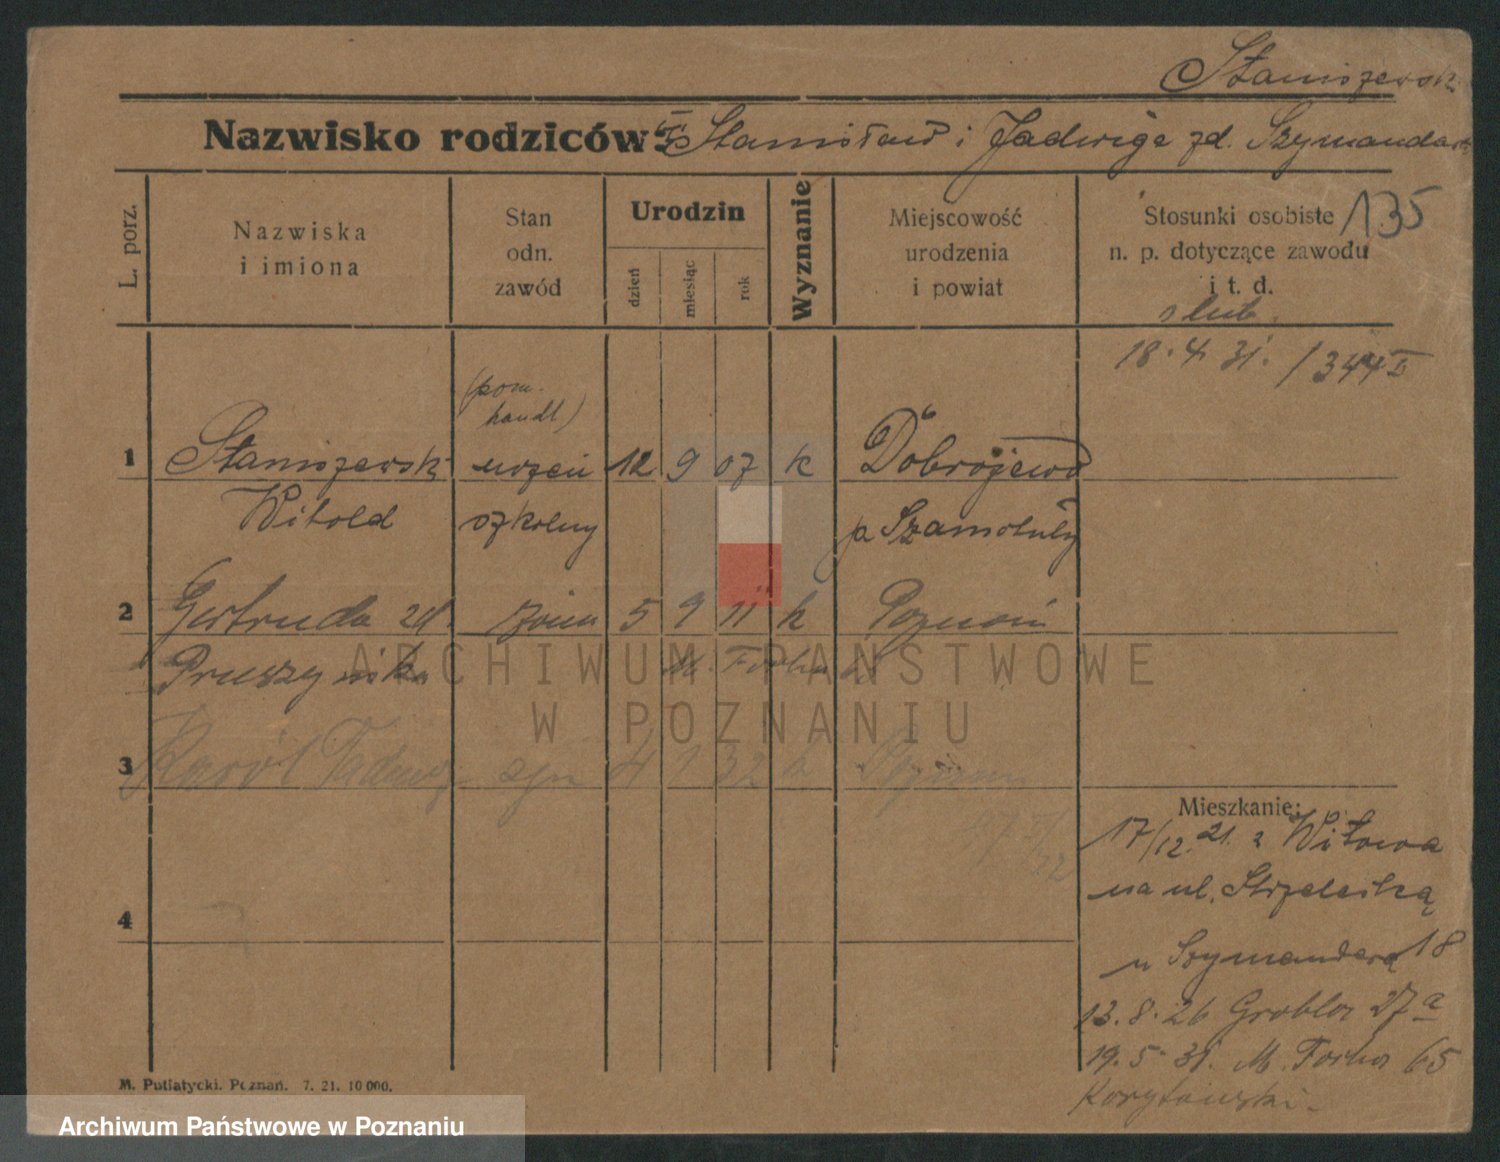 Staniszewski
Nazwisko rodziców: Stanisław i Jadwiga zd. Szymandera
L. porz.
Nazwiska
i imiona
Stan
odn.
zawód
Urodzin
dzień
miesiąc
rok
Wyznanie
Miejscowość
urodzenia
i powiat
Stosunki osobiste 135
n. p. dotyczące zawodu
i t. d.
slub.
18.4.31. / 344 II
(pom.
handl)
1 Staniszewski uczeń 12 9 07 k Dobrojewo
Witold szkolny p Szamotuły
2 Gertruda zd. żona 5 9 11 k Poznań
Pruszyńska M. Focha
3 Karól Tadeusz syn 4 1 32 k Poznań
Mieszkanie:
17/12.21. z Witowa
na ul. Strzelecką
4
u Szymandera 18
13.8.26 Grobla 27a
19.5.31. M. Focha 65
M. Putiatycki. Poznań. 7. 21. 10 000.
ARCHIWUM PAŃSTWOWE
W POZNANIU
Archiwum Państwowe w Poznaniu